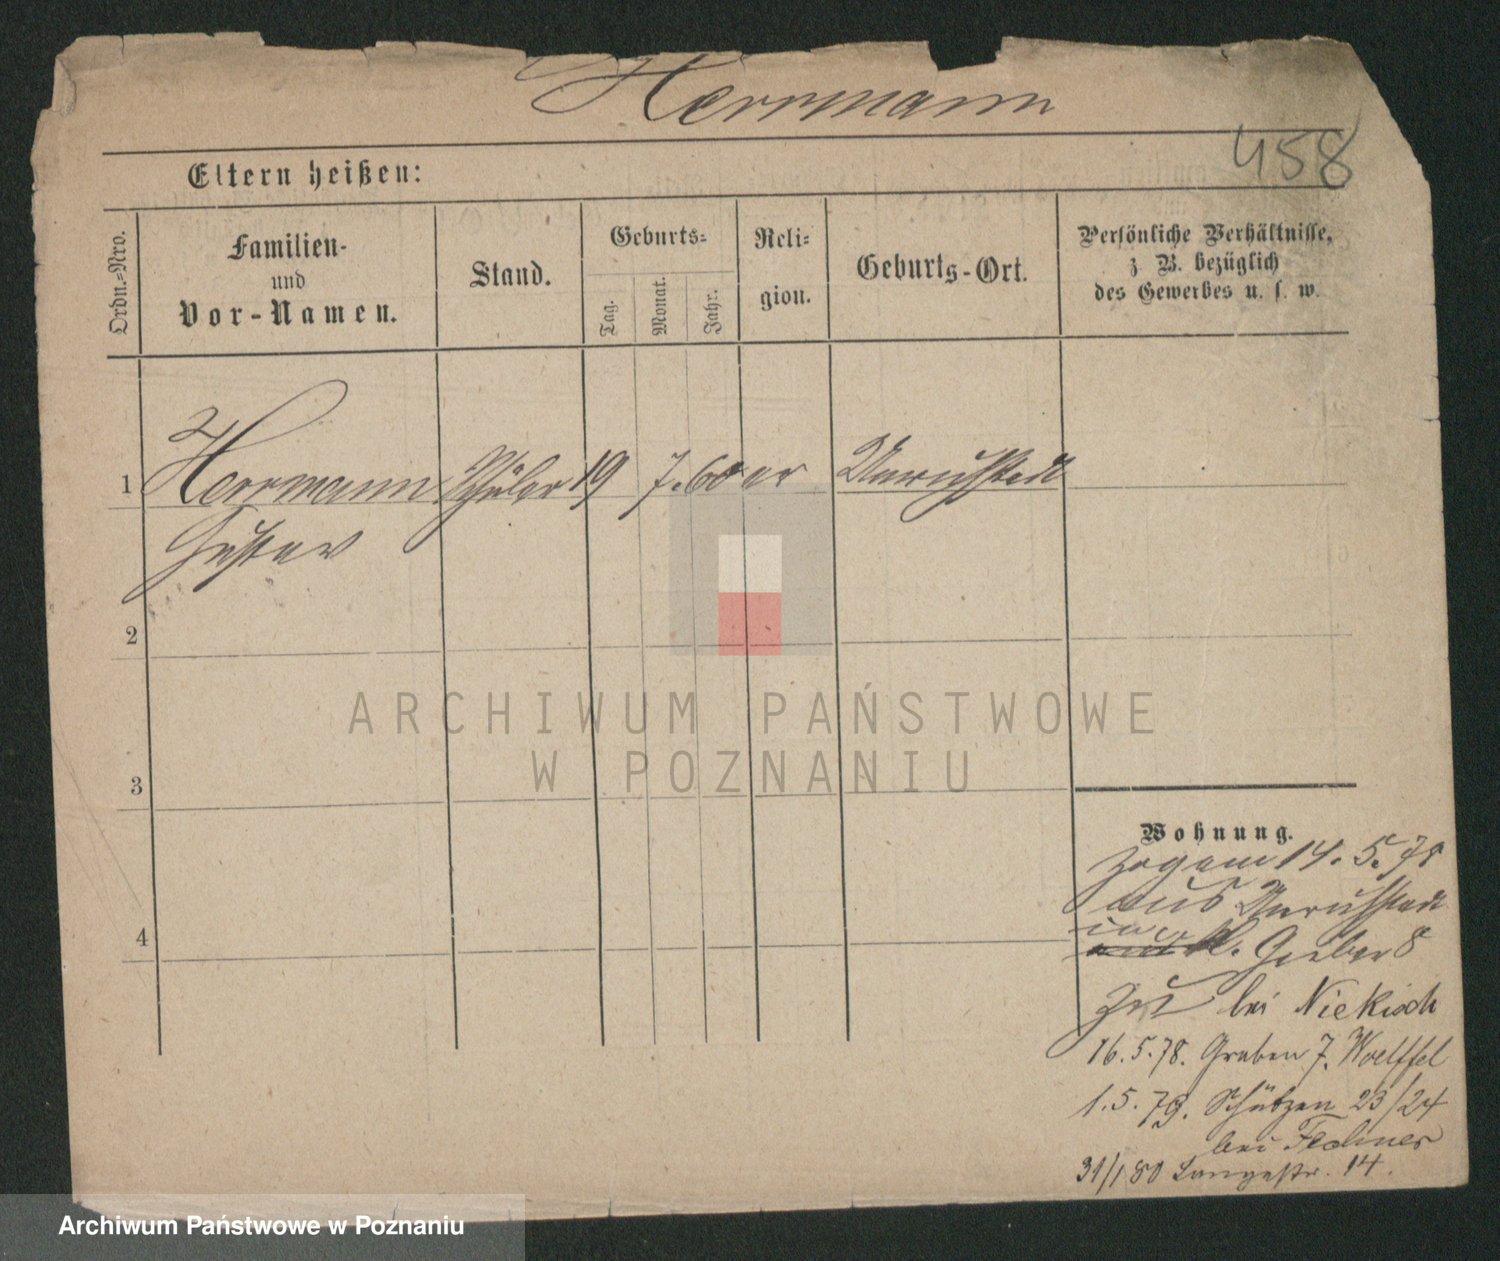 Herrmann
458
Eltern heißen:
Ordn.=Nro.
Familien-
und
Vor-Namen.
Stand.
Geburts=
Tag.
Monat.
Jahr.
Reli=
gion.
Geburts-Ort.
Persönliche Verhältnisse,
z B. bezüglich
des Gewerbes u. s. w.
1 Herrmann Schüler 19 7. 60 ev Unruhstadt
Gustav
2
3
4
Wohnung.
zog am 14. 5. 78
aus Unruhstadt
in kl. Gerber 8
zu bei Niekisch
16. 5. 78. Graben 7. Woelffel
1. 5. 79. Schützen 23/24
bei
31/1 80 Langestr. 14.
ARCHIWUM PAŃSTWOWE
W POZNANIU
Archiwum Państwowe w Poznaniu